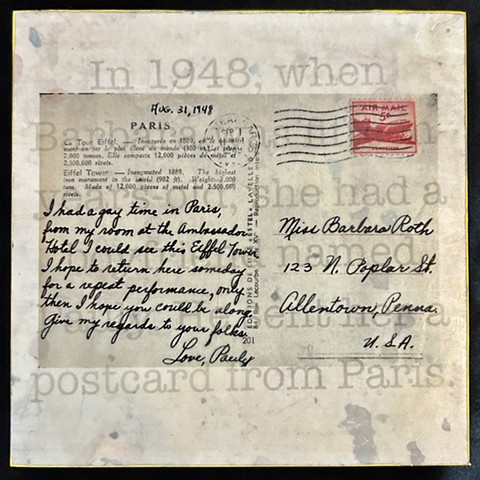 In 1948, when
Aug. 31, 1948
PARIS
La Tour Eiffel. — Inaugurée en 1889,
2,000 tonnes. Elle comporte 12,000 pièces de métal et
2,500,000 rivets.
Eiffel Tower — Inaugurated 1889. The highest
iron monument in the world (982 ft). Weight: 7,000
tons. Made of 12,000 pieces of metal and 2,500,000
rivets.
AIR MAIL
5¢
she had a
named
I had a gay time in Paris,
from my room at the Ambassador
Hotel I could see this Eiffel Tower
I hope to return here someday
for a repeat performance, only
then I hope you could be along.
Give my regards to your folks.
Love, Pauly
201
Miss Barbara Roth
123 N. Poplar St.
Allentown, Penna.
U.S.A.
postcard from Paris.